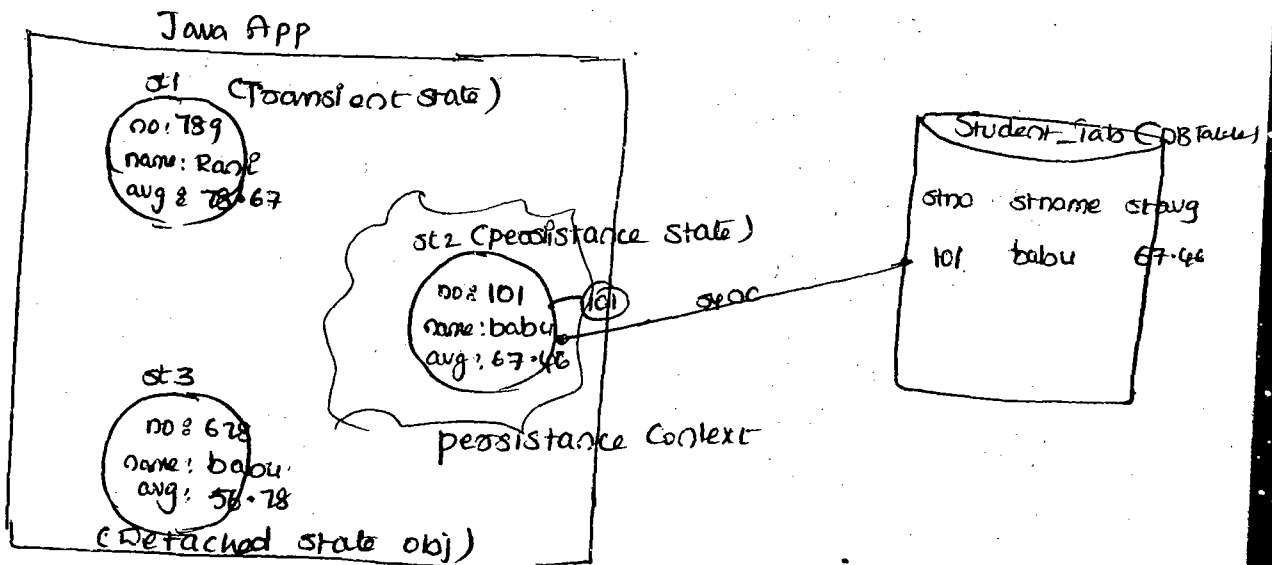 Java App
st1 (Transient state)
no: 789
name: Rani
avg: 78.67
st2 (persistance state)
no: 101
name: babu
avg: 67.46
101
sync
persistance Context
st3
no: 678
name: babu
avg: 56.78
(Detached state obj)
Student_Tab (DB Table)
stno stname stavg
101 babu 67.46